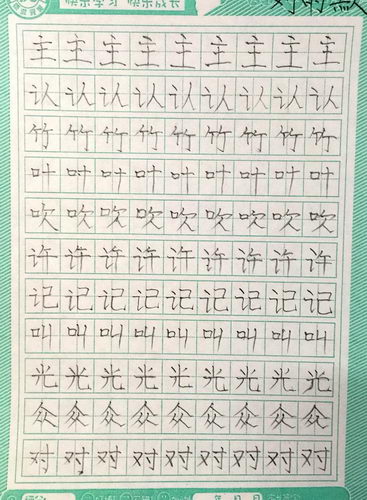 快乐学习 快乐成长
主主主主主主主主主
认认认认认认认认认
竹竹竹竹竹竹竹竹竹
叶叶叶叶叶叶叶叶叶
吹吹吹吹吹吹吹吹吹
许许许许许许许许许
记记记记记记记记记
叫叫叫叫叫叫叫叫叫
光光光光光光光光光
众众众众众众众众众
对对对对对对对对对
年 月 日